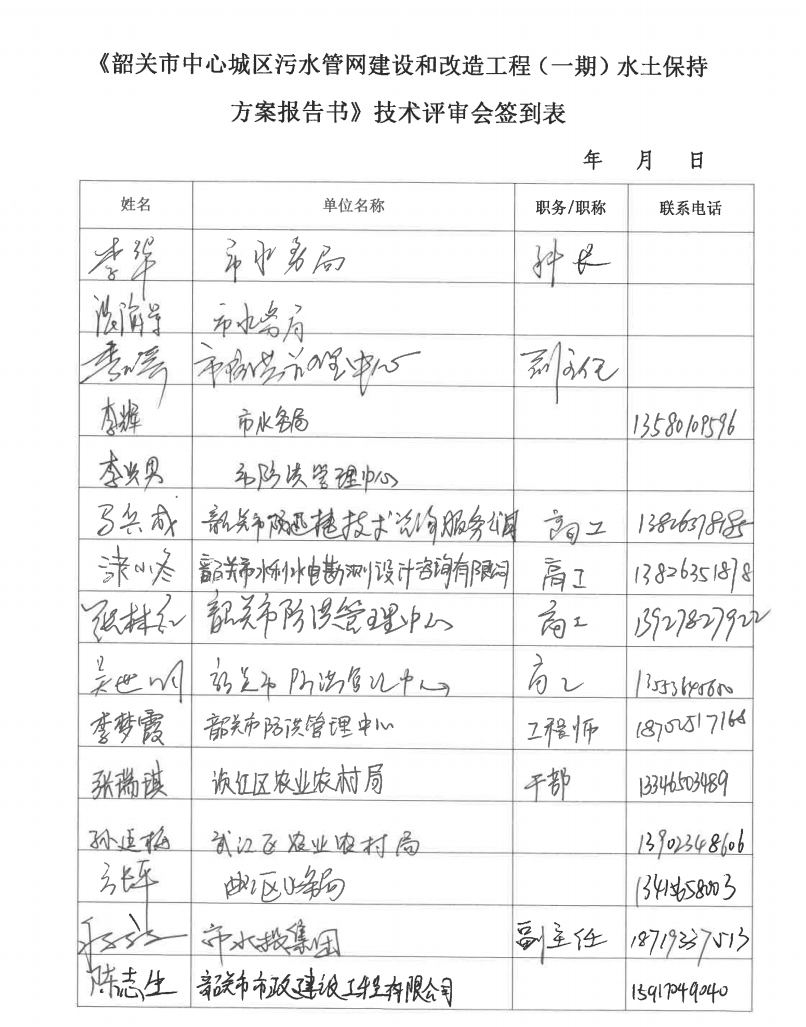 《韶关市中心城区污水管网建设和改造工程（一期）水土保持
方案报告书》技术评审会签到表
年 月 日
姓名 单位名称 职务/职称 联系电话
李华 市水务局 科长
市水务局
市防洪管理中心 副主任
李辉 市水务局 13580109596
李兴男 市防洪管理中心
马兵成 韶关市 捷技术咨询服务公司 高工
小冬 韶关市水利水电勘测设计咨询有限公司 高工 13826351878
张林红 韶关市防洪管理中心 高工 13927827922
吴世明 韶关市防洪管理中心 高工
李梦霞 韶关市防洪管理中心 工程师
张瑞琪 浈江区农业农村局 干部 13346503489
孙 梅 武江区农业农村局 13902348606
曲江区水务局
市水投集团 副主任 18719337513
陈志生 韶关市市政建设工程有限公司 15917049040